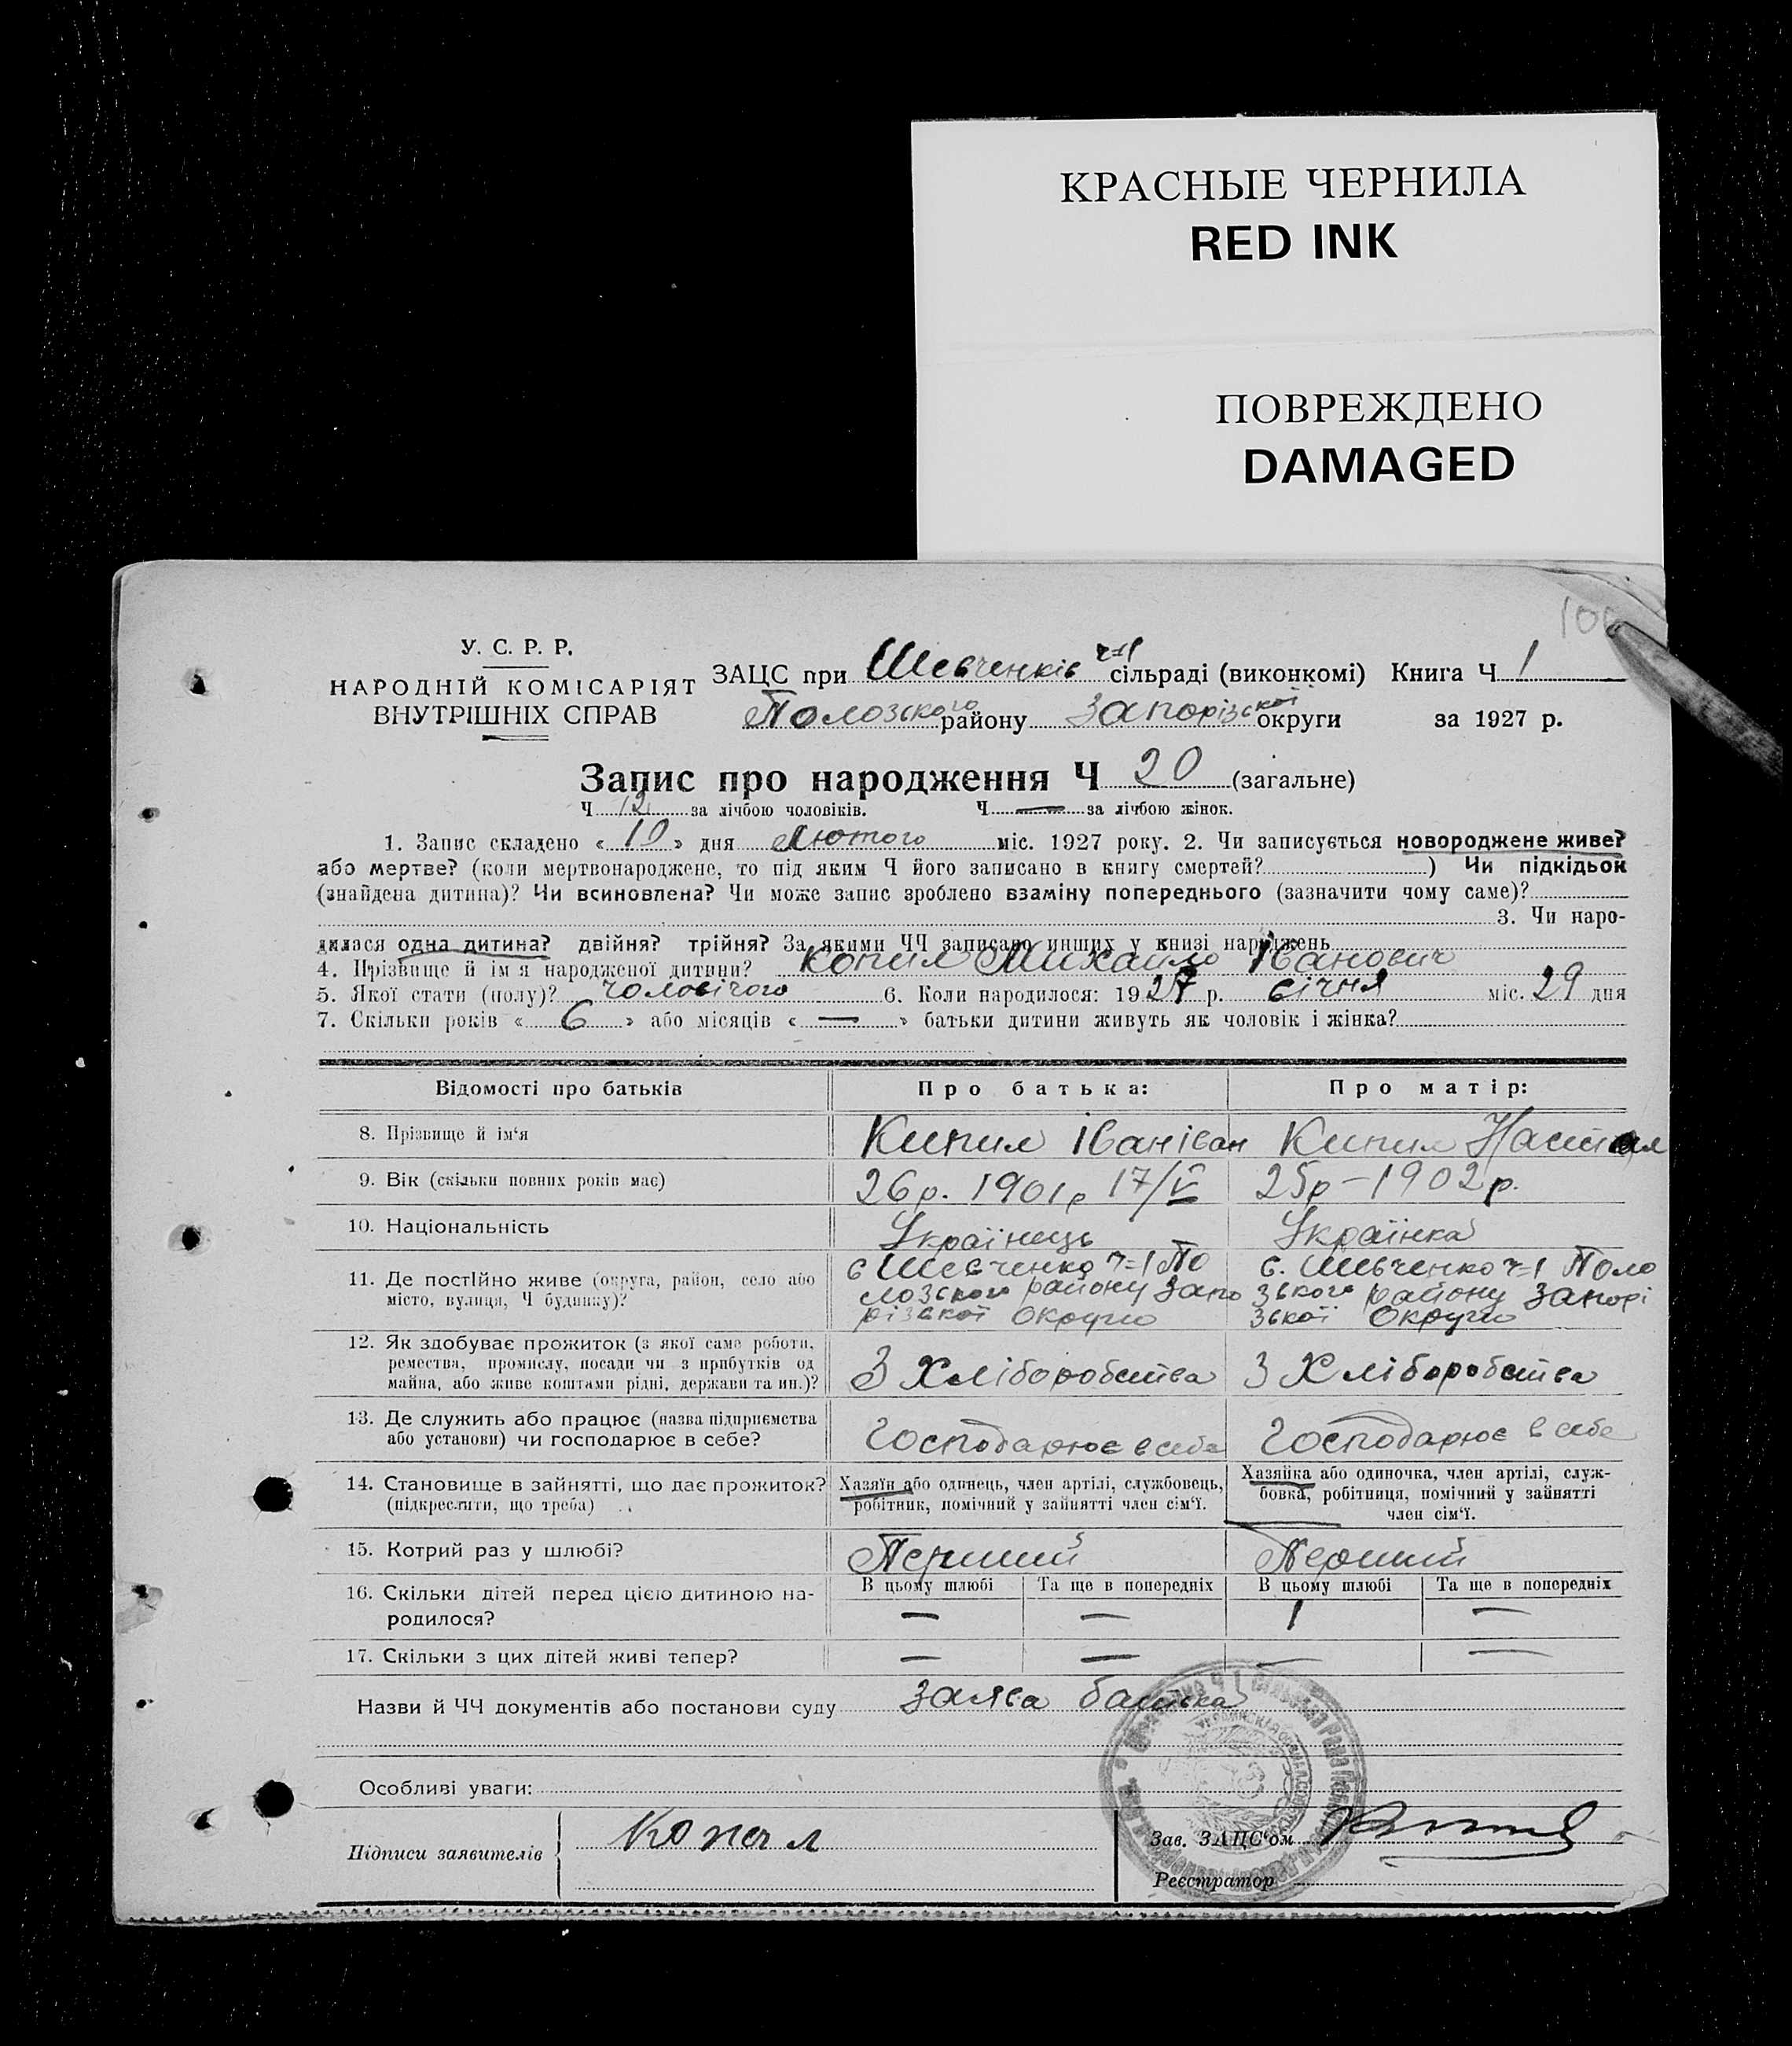 КРАСНЫЕ ЧЕРНИЛА
RED INK
ПОВРЕЖДЕНО
DAMAGED
100
У. С. Р. Р.
НАРОДНІЙ КОМІСАРІЯТ
ВНУТРІШНІХ СПРАВ
ЗАЦС при Шевченків ч=1 сільраді (виконкомі) Книга Ч 1
Полозського району Запорізської округи за 1927 р.
Запис про народження Ч 20 (загальне)
Ч 12 за лічбою чоловіків. Ч — за лічбою жінок.
1. Запис складено « 10 » дня Лютого міс. 1927 року. 2. Чи записується новороджене живе?
або мертве? (коли мертвонароджене, то під яким Ч його записано в книгу смертей? ) Чи підкідьок
(знайдена дитина)? Чи всиновлена? Чи може запис зроблено взаміну попереднього (зазначити чому саме)?
3. Чи наро-
дилася одна дитина? двійня? трійня? За якими ЧЧ записано инших у книзі народжень
4. Прізвище й ім'я народженої дитини? Копил Михайло Іванович
5. Якої стати (полу)? чоловічого 6. Коли народилося: 1927 р. січня міс. 29 дня
7. Скільки років « 6 » або місяців « — » батьки дитини живуть як чоловік і жінка?
Відомості про батьків Про батька: Про матір:
8. Прізвище й ім'я Кипил Іван Іван Кипил
9. Вік (скільки повних років має) 26 р. 1901 р 17/V 25 р – 1902 р.
10. Національність Українець Українка
11. Де постійно живе (округа, район, село або
місто, вулиця, Ч будинку)?
с Шевченко ч=1 По
лозського району Запо
різської Округи
с. Шевченко ч=1 Поло
зського району Запорі
зської Округи
12. Як здобуває прожиток (з якої саме роботи,
ремества, промислу, посади чи з прибутків од
майна, або живе коштами рідні, держави та ин.)?
З Хліборобства З Хліборобства
13. Де служить або працює (назва підприємства
або установи) чи господарює в себе?
Господарює в себе Господарює в себе
14. Становище в зайнятті, що дає прожиток?
(підкреслити, що треба)
Хазяїн або одинець, член артілі, службовець,
робітник, помічний у зайнятті член сім'ї.
Хазяйка або одиночка, член артілі, служ-
бовка, робітниця, помічний у зайнятті
член сім'ї.
15. Котрий раз у шлюбі? Перший Перший
16. Скільки дітей перед цією дитиною на-
родилося?
В цьому шлюбі Та ще в попередніх В цьому шлюбі Та ще в попередніх
— — 1 —
17. Скільки з цих дітей живі тепер? — — — —
Назви й ЧЧ документів або постанови суду Заява батька
Особливі уваги:
Підписи заявителів Копил
Зав. ЗАЦС'ом
Реєстратор